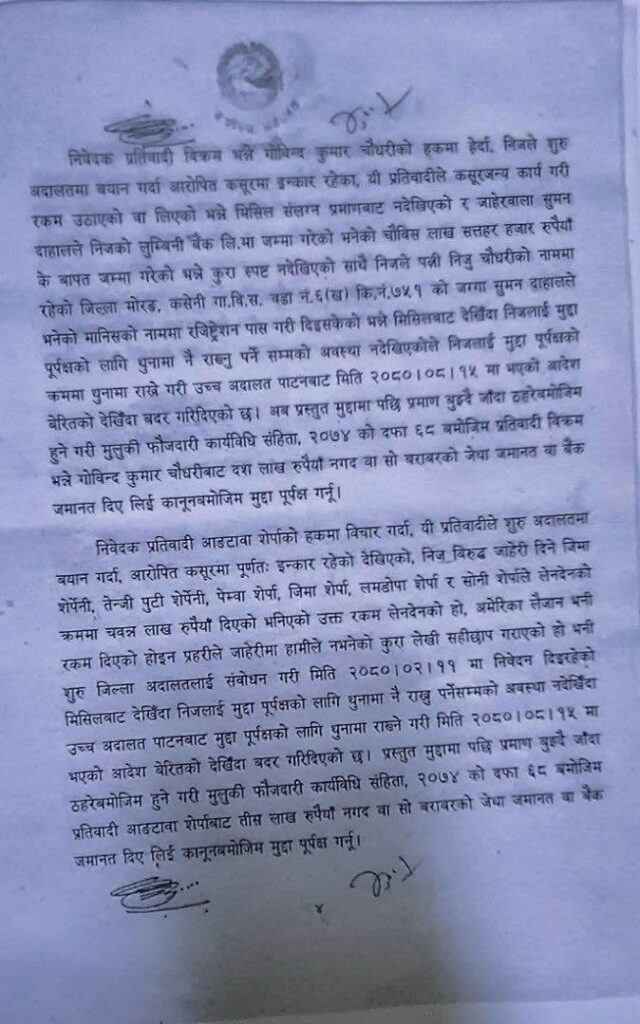 निवेदक प्रतिवादी विक्रम भन्ने गोविन्द कुमार चौधरीको हकमा हेर्दा, निजले शुरु
अदालतमा बयान गर्दा आरोपित कसूरमा इन्कार रहेका, यी प्रतिवादीले कसूरजन्य कार्य गरी
रकम उठाएको वा लिएको भन्ने मिसिल संलग्न प्रमाणबाट नदेखिएको र जाहेरवाला सुमन
दाहालले निजको लुम्बिनी बैंक लि.मा जम्मा गरेको भनेको चौविस लाख सत्तहर हजार रुपैयाँ
के बापत जम्मा गरेको भन्ने कुरा स्पष्ट नदेखिएको साथै निजले पत्नी निजु चौधरीको नाममा
रहेको जिल्ला मोरङ, कसेनी गा.वि.स. वडा नं.६(ख) कि.नं.७५१ को जग्गा सुमन दाहालले
भनेको मानिसको नाममा रजिष्ट्रेशन पास गरी दिइसकेको भन्ने मिसिलबाट देखिँदा निजलाई मुद्दा
पूर्पक्षको लागि थुनामा नै राख्नु पर्ने सम्मको अवस्था नदेखिएकोले निजलाई मुद्दा पूर्पक्षको
क्रममा थुनामा राख्ने गरी उच्च अदालत पाटनबाट मिति २०८०।०८।१५ मा भएको आदेश
बेरितको देखिँदा बदर गरिदिएको छ। अब प्रस्तुत मुद्दामा पछि प्रमाण बुझ्दै जाँदा ठहरेबमोजिम
हुने गरी मुलुकी फौजदारी कार्यविधि संहिता, २०७४ को दफा ६८ बमोजिम प्रतिवादी विक्रम
भन्ने गोविन्द कुमार चौधरीबाट दश लाख रुपैयाँ नगद वा सो बराबरको जेथा जमानत वा बैंक
जमानत दिए लिई कानूनबमोजिम मुद्दा पूर्पक्ष गर्नू।
निवेदक प्रतिवादी आङटावा शेर्पाको हकमा विचार गर्दा, यी प्रतिवादीले शुरु अदालतमा
बयान गर्दा, आरोपित कसूरमा पूर्णतः इन्कार रहेको देखिएको, निज विरुद्ध जाहेरी दिने जिमा
शेर्पेनी, तेन्जी पुटी शेर्पेनी, पेम्वा शेर्पा, जिमा शेर्पा, लमडोपा शेर्पा र सोनी शेर्पाले लेनदेनको
क्रममा चवन्न लाख रुपैयाँ दिएको भनिएको उक्त रकम लेनदेनको हो, अमेरिका लैजान भनी
रकम दिएको होइन प्रहरीले जाहेरीमा हामीले नभनेको कुरा लेखी सहीछाप गराएको हो भनी
शुरु जिल्ला अदालतलाई संबोधन गरी मिति २०८०।०२।११ मा निवेदन दिइरहेको
मिसिलबाट देखिँदा निजलाई मुद्दा पूर्पक्षको लागि थुनामा नै राख्नु पर्नेसम्मको अवस्था नदेखिँदा
उच्च अदालत पाटनबाट मुद्दा पूर्पक्षको लागि थुनामा राख्ने गरी मिति २०८०।०८।१५ मा
भएको आदेश बेरितको देखिँदा बदर गरिदिएको छ। प्रस्तुत मुद्दामा पछि प्रमाण बुझ्दै जाँदा
ठहरेबमोजिम हुने गरी मुलुकी फौजदारी कार्यविधि संहिता, २०७४ को दफा ६८ बमोजिम
प्रतिवादी आङटावा शेर्पाबाट तीस लाख रुपैयाँ नगद वा सो बराबरको जेथा जमानत वा बैंक
जमानत दिए लिई कानूनबमोजिम मुद्दा पूर्पक्ष गर्नू।
४